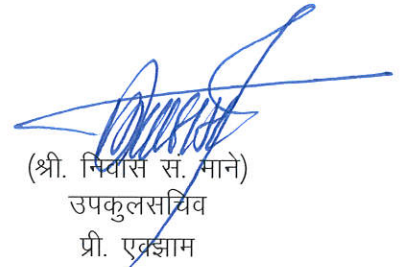 (श्री. निवास स. माने)
उपकुलसचिव
प्री. एक्झाम